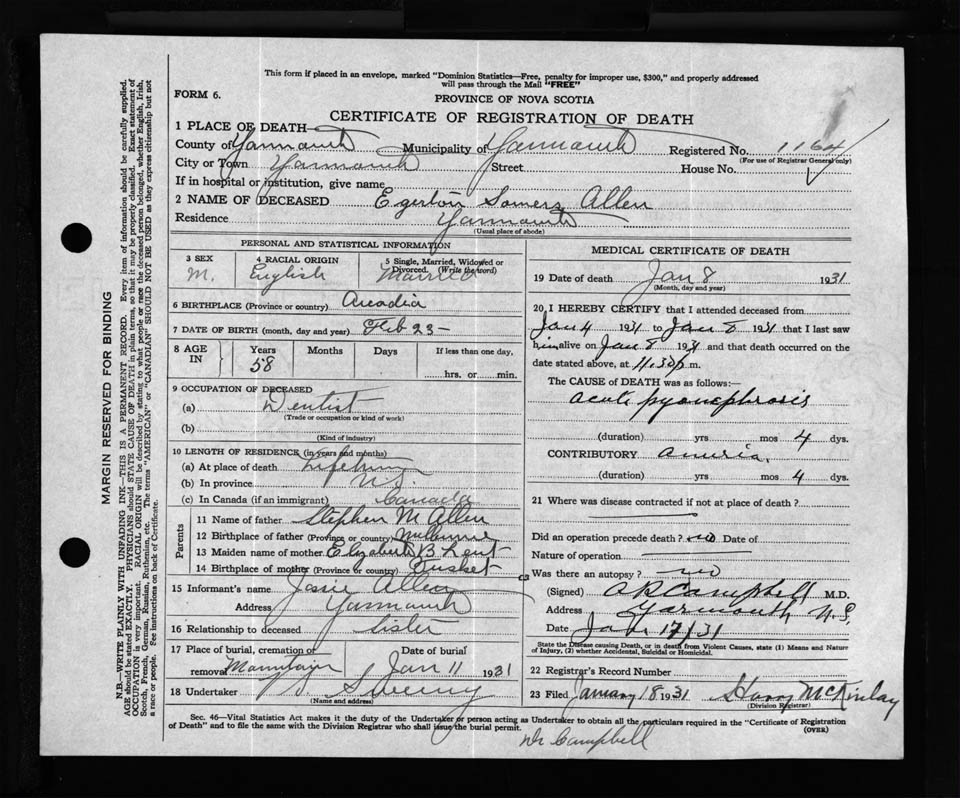 This form if placed in an envelope, marked "Dominion Statistics—Free, penalty for improper use, $300," and properly addressed
will pass through the Mail "FREE"
FORM 6.
PROVINCE OF NOVA SCOTIA
CERTIFICATE OF REGISTRATION OF DEATH
1 PLACE OF DEATH
County of Yarmouth Municipality of Yarmouth Registered No. 1164
(For use of Registrar General only)
City or Town Yarmouth Street House No.
If in hospital or institution, give name
2 NAME OF DECEASED Egerton Somers Allen
Residence Yarmouth
(Usual place of abode)
PERSONAL AND STATISTICAL INFORMATION
3 SEX 4 RACIAL ORIGIN 5 Single, Married, Widowed or
Divorced. (Write the word)
M. English Married
6 BIRTHPLACE (Province or country) Arcadia
7 DATE OF BIRTH (month, day and year) Feb 23-
8 AGE IN Years Months Days If less than one day,
58 hrs. or min.
9 OCCUPATION OF DECEASED
(a) Dentist
(Trade or occupation or kind of work)
(b)
(Kind of industry)
10 LENGTH OF RESIDENCE (in years and months)
(a) At place of death Lifetime
(b) In province N.S.
(c) In Canada (if an immigrant) Canada
Parents
11 Name of father Stephen M Allen
12 Birthplace of father (Province or country)
13 Maiden name of mother Elizabeth B Lent
14 Birthplace of mother (Province or country) Tusket
15 Informant's name Josie Allen
Address Yarmouth
16 Relationship to deceased Sister
17 Place of burial, cremation or Date of burial
removal Mountain Jan 11 1931
18 Undertaker Sweeny
(Name and address)
MEDICAL CERTIFICATE OF DEATH
19 Date of death Jan 8 1931
(Month, day and year)
20 I HEREBY CERTIFY that I attended deceased from
Jan 4 1931 to Jan 8 1931 that I last saw
him alive on Jan 8 1931 and that death occurred on the
date stated above, at 11.30 p m.
The CAUSE of DEATH was as follows:—
acute pyonephrosis
(duration) yrs mos 4 dys.
CONTRIBUTORY Anuria
(duration) yrs mos 4 dys.
21 Where was disease contracted if not at place of death?
Did an operation precede death? no Date of
Nature of operation
Was there an autopsy? no
(Signed) A R Campbell M.D.
Address Yarmouth N.S.
Date Jan 17/31
State the Disease causing Death, or in death from Violent Causes, state (1) Means and Nature
of Injury, (2) whether Accidental, Suicidal or Homicidal.
22 Registrar's Record Number
23 Filed January 18 1931 Harry McKinlay
(Division Registrar)
Sec. 46—Vital Statistics Act makes it the duty of the Undertaker or person acting as Undertaker to obtain all the particulars required in the "Certificate of Registration
of Death" and to file the same with the Division Registrar who shall issue the burial permit. (OVER)
Dr Campbell
MARGIN RESERVED FOR BINDING
N.B.—WRITE PLAINLY WITH UNFADING INK—THIS IS A PERMANENT RECORD. Every item of information should be carefully supplied.
AGE should be stated EXACTLY. PHYSICIANS should STATE CAUSE OF DEATH in plain terms, so that it may be properly classified. Exact statement of
OCCUPATION is very important. RACIAL ORIGIN will be described by stating to what people or race the deceased person belonged, whether English, Irish,
Scotch, French, German, Russian, Ruthenian, etc. The terms "AMERICAN" or "CANADIAN" SHOULD NOT BE USED as they express citizenship but not
a race or people. See instructions on back of Certificate.